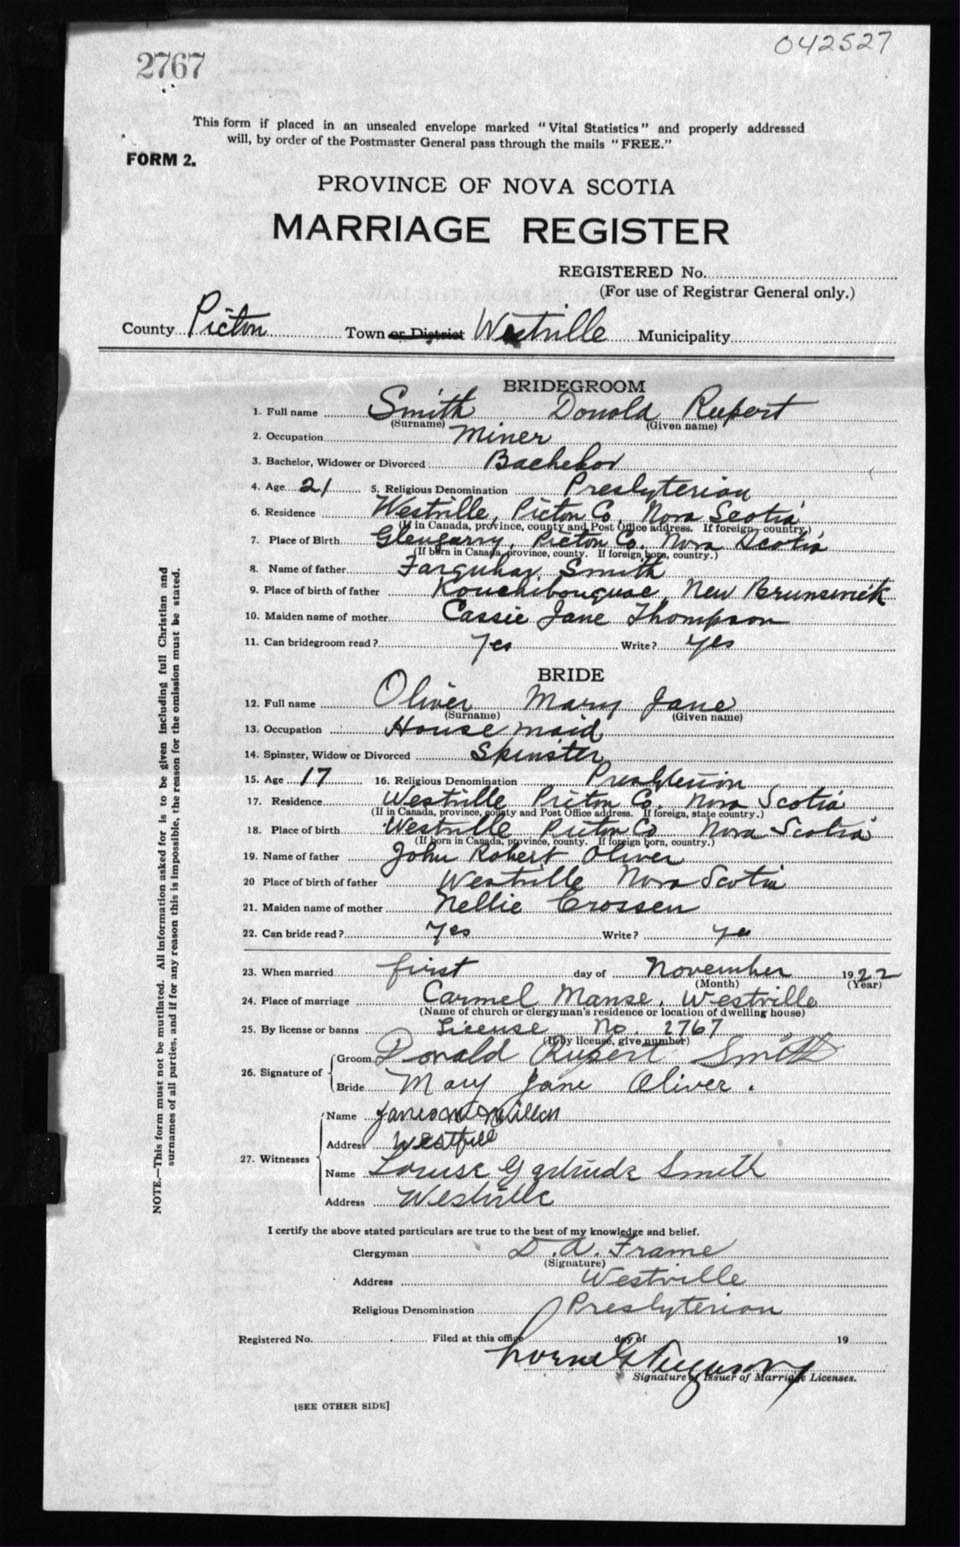 2767
042527
This form if placed in an unsealed envelope marked "Vital Statistics" and properly addressed
will, by order of the Postmaster General pass through the mails "FREE."
FORM 2.
PROVINCE OF NOVA SCOTIA
MARRIAGE REGISTER
REGISTERED No.
(For use of Registrar General only.)
County Picton Town or District Westville Municipality
BRIDEGROOM
1. Full name Smith Donald Rupert
(Surname) (Given name)
2. Occupation Miner
3. Bachelor, Widower or Divorced Bachelor
4. Age 21 5. Religious Denomination Presbyterian
6. Residence Westville, Picton Co, Nova Scotia
(If in Canada, province, county and Post Office address. If foreign, country.)
7. Place of Birth Glengarry, Picton Co. Nova Scotia
(If born in Canada, province, county. If foreign born, country.)
8. Name of father Farquhar Smith
9. Place of birth of father Kouchibouguac, New Brunswick
10. Maiden name of mother Cassie Jane Thompson
11. Can bridegroom read? Yes Write? yes
BRIDE
12. Full name Oliver Mary Jane
(Surname) (Given name)
13. Occupation House maid
14. Spinster, Widow or Divorced Spinster
15. Age 17 16. Religious Denomination Presbyterian
17. Residence Westville Picton Co. Nova Scotia
(If in Canada, province, county and Post Office address. If foreign, state country.)
18. Place of birth Westville Picton Co Nova Scotia
(If born in Canada, province, county. If foreign born, country.)
19. Name of father John Robert Oliver
20 Place of birth of father Westville Nova Scotia
21. Maiden name of mother Nellie Crossen
22. Can bride read? Yes Write? yes
23. When married first day of November 1922
(Month) (Year)
24. Place of marriage Carmel Manse, Westville
(Name of church or clergyman's residence or location of dwelling house)
25. By license or banns License No. 2767
(If by license, give number)
26. Signature of Groom Donald Rupert Smith
Bride Mary Jane Oliver.
27. Witnesses
Name
Address Westville
Name Louise Gertrude Smith
Address Westville
I certify the above stated particulars are true to the best of my knowledge and belief.
Clergyman D. A. Frame
(Signature)
Address Westville
Religious Denomination Presbyterian
Registered No. Filed at this office day of 19
Lorne G Ferguson
Signature of Issuer of Marriage Licenses.
[SEE OTHER SIDE]
NOTE.—This form must not be mutilated. All information asked for is to be given including full Christian and
surnames of all parties, and if for any reason this is impossible, the reason for the omission must be stated.